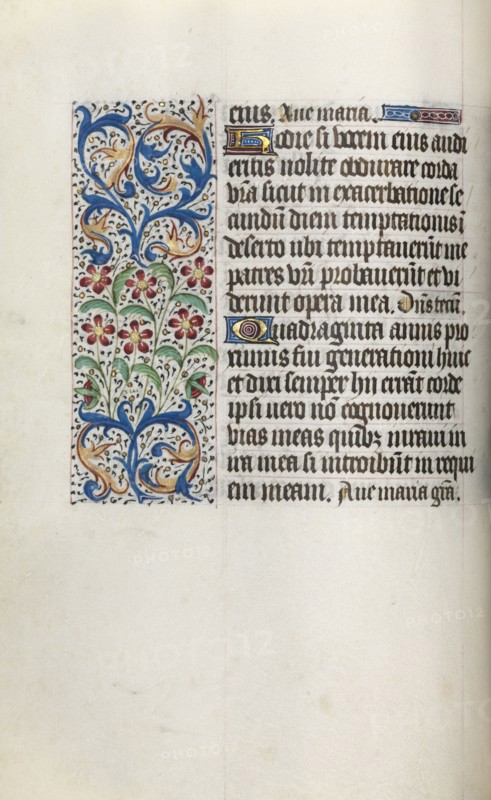 eius. Aue maria.
Hodie si vocem eius audi
eritis nolite obdurare corda
vr̃a sicut in exacerbatione se
cundũ diem temptationis ĩ
deserto ubi temptauerũt me
patres vr̃i probauerũt et vi
derunt opera mea. Dñs tecũ.
Quadraginta annis pro
ximus fui generationi huic
et dixi semper hii errãt corde
ipsi uero nõ cognouerunt
vias meas quibꝫ iuraui in
ira mea si introibũt in requi
em meam. Aue maria gr̃a.
PHOTO12